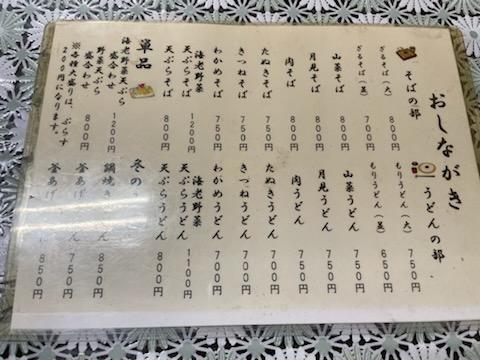 おしながき
そばの部
ざるそば(大) 800円
ざるそば(並) 700円
山菜そば 800円
月見そば 800円
肉そば 800円
たぬきそば 750円
きつねそば 750円
わかめそば 750円
海老野菜
天ぷらそば 1200円
天ぷらそば 800円
単品
海老野菜天ぷら
盛合わせ 1200円
野菜天ぷら
盛合わせ 800円
※各種大盛りは、ぷらす
200円になります。
うどんの部
もりうどん(大) 750円
もりうどん(並) 650円
山菜うどん 750円
月見うどん 750円
肉うどん 750円
たぬきうどん 700円
きつねうどん 700円
わかめうどん 700円
海老野菜
天ぷらうどん 1100円
天ぷらうどん 800円
冬の
鍋焼き 850円
釜あげ 750円
釜あげ 850円